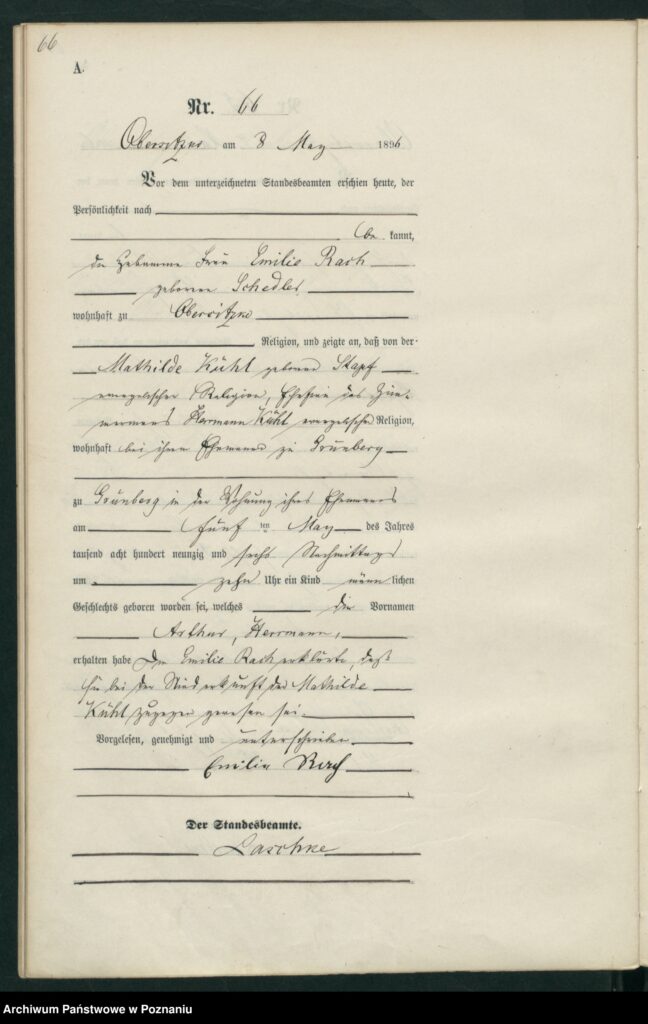 66
A.
Nr. 66
Obersitzko am 8 May 1896
Vor dem unterzeichneten Standesbeamten erschien heute, der
Persönlichkeit nach
be kannt,
die Hebamme Frau Emilie Rach
geborene Schedler
wohnhaft zu Obersitzko
Religion, und zeigte an, daß von der
Mathilde Kühl geborene Stapf
evangelischer Religion, Ehefrau des Zim-
mermanns Hermann Kühl evangelischer Religion,
wohnhaft bei ihrem Ehemanne zu Grünberg
zu Grünberg in der Wohnung ihres Ehemannes
am fünf ten May des Jahres
tausend acht hundert neunzig und sechs Nachmittags
um zehn Uhr ein Kind männ lichen
Geschlechts geboren worden sei, welches die Vornamen
Arthur, Herrmann,
erhalten habe Die Emilie Rach erklärte, daß
sie bei der Niederkunft der Mathilde
Kühl zugegen gewesen sei.
Vorgelesen, genehmigt und unterschrieben
Emilie Rach
Der Standesbeamte.
Laschke
Archiwum Państwowe w Poznaniu